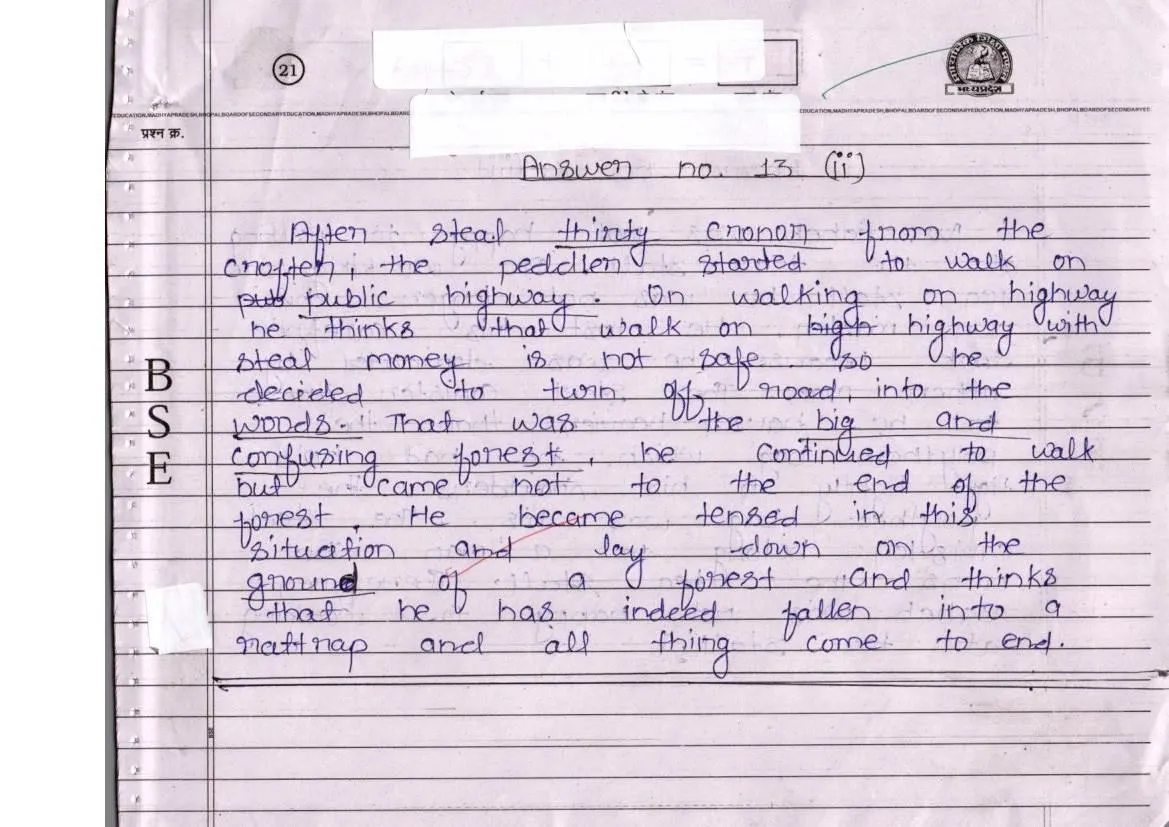 21
माध्यमिक शिक्षा मण्डल
मध्यप्रदेश
EDUCATION,MADHYAPRADESH,BHOPALBOARDOFSECONDARYEDUCATION,MADHYAPRADESH,BHOPALBOARD EDUCATION,MADHYAPRADESH,BHOPALBOARDOFSECONDARYEDUCATION,MADHYAPRADESH,BHOPALBOARDOFSECONDARYED
प्रश्न क्र.
Answer no. 13 (ii)
After steal thirty cronor from the
crofter, the peddler started to walk on
pub public highway. On walking on highway
he thinks that walk on high highway with
steal money is not safe. so he
decided to turn off road, into the
woods. That was the big and
confusing forest, he continued to walk
but came not to the end of the
forest. He became tensed in this
situation and lay down on the
ground of a forest and thinks
that he has indeed fallen into a
rattrap and all thing come to end.
B
S
E